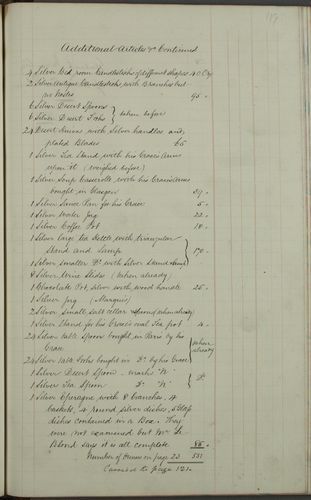 119
Additional Articles &c Continued
4 Silver Bed room Candlesticks of different shapes 40 Oz
2 Silver Antique Candlesticks, with branches but
no Nozles 95 "
6 Silver Desert Spoons
6 Silver Desert Forks } taken before
24 Desert Knives with Silver handles and
plated Blades 65
1 Silver Tea Stand with his Grace's Arms
upon it (weighed before)
1 Silver Soup Casserolle with his Grace's Arms
bought in Glasgow
1 Silver Sauce Pan for his Grace 5 "
1 Silver Water Jug 22 "
1 Silver Coffee Pot 18 "
1 Silver large tea Kettle with triangular
Stand and Lamp
1 Silver smaller Do with Silver Stand } 170 "
8 Silver Wine Slides (taken already)
1 Chocolate Pot, Silver with wood handle 25 "
1 Silver Jug (Marquis)
2 Silver small Salt cellar Spoons (taken already)
1 Silver Stand for his Grace's oval Tea pot 4 "
24 Silver table Spoons bought in Paris by his
Grace
24 Silver table Forks bought in Do by his Grace } taken already
1 Silver Desert Spoon marks "N"
1 Silver Tea Spoon Do "N" } Do
1 Silver Epergne with 8 branches, 4
baskets, 4 round silver dishes, 5 Glass
dishes contained in a Box. They
were not examined but Mr Le
Blond says it is all complete
Number of Ounces on page 23 531
Carried to page 121.